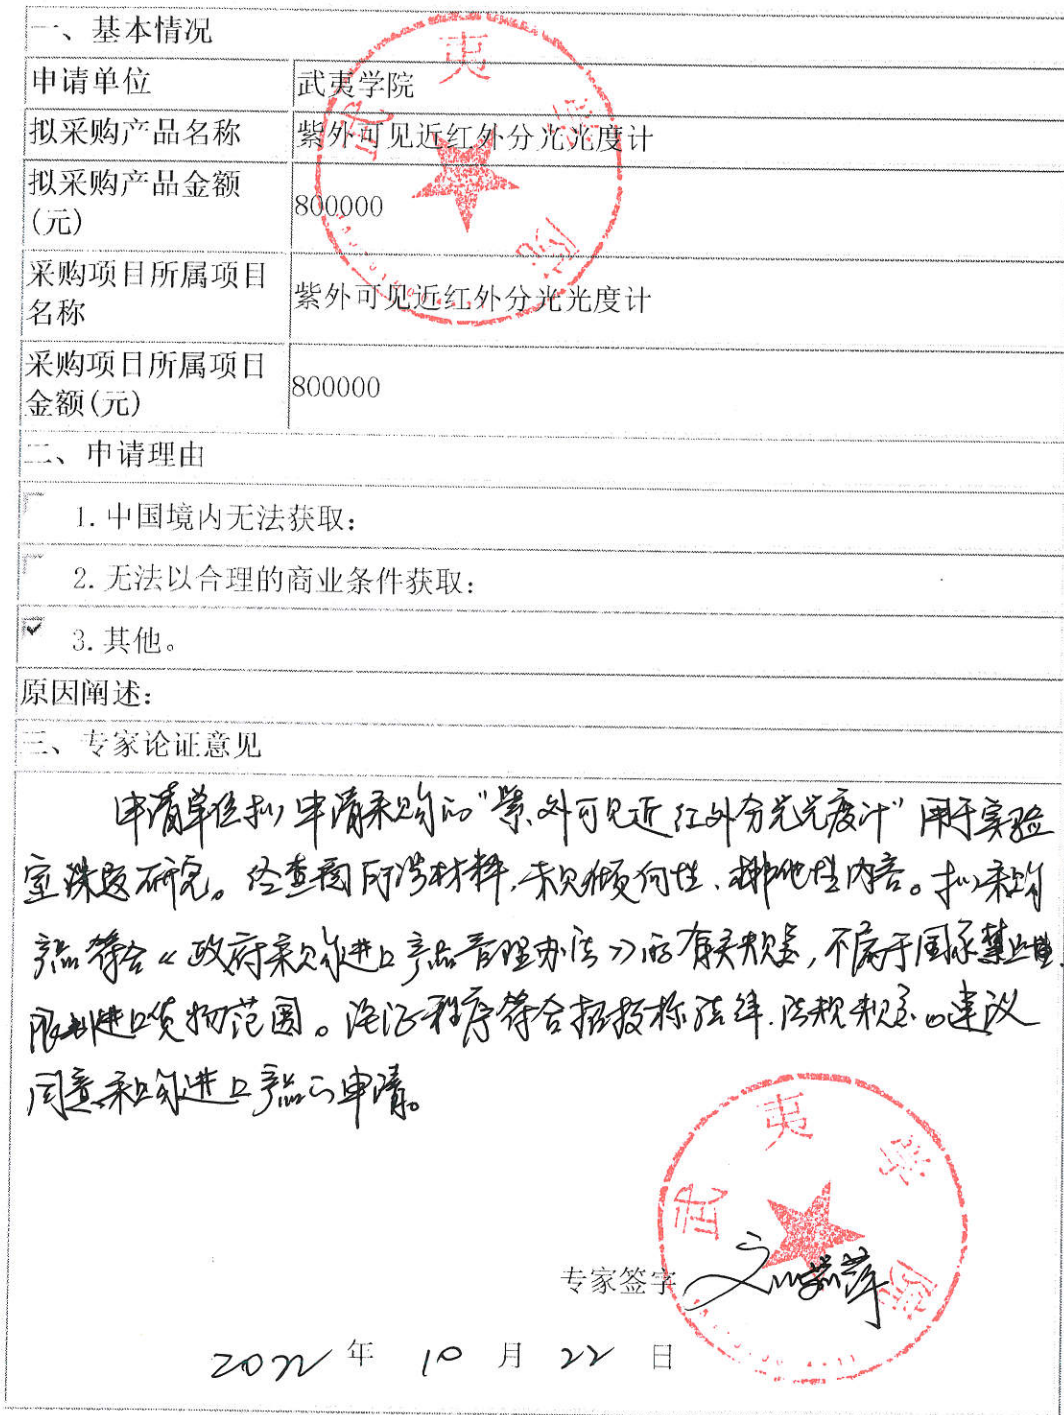 一、基本情况
申请单位 武夷学院
拟采购产品名称 紫外可见近红外分光光度计
拟采购产品金额
(元) 800000
采购项目所属项目
名称 紫外可见近红外分光光度计
采购项目所属项目
金额(元) 800000
二、申请理由
1.中国境内无法获取:
2.无法以合理的商业条件获取:
3.其他。
原因阐述:
三、专家论证意见
申请单位拟申请采购的"紫外可见近红外分光光度计"用于实验
室课题研究。经查阅所涉材料,未见倾向性、排他性内容。拟采购
产品符合《政府采购进口产品管理办法》的有关规定,不属于国家禁止或
限制进口货物范围。论证程序符合招投标法律、法规规定。建议
同意采购进口产品的申请。
武夷学院
专家签字
2022年10月22日
武夷学院